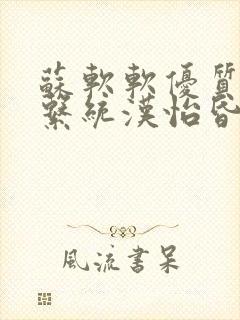 蘇軟軟優質
繫統漢怡昏
風流書呆